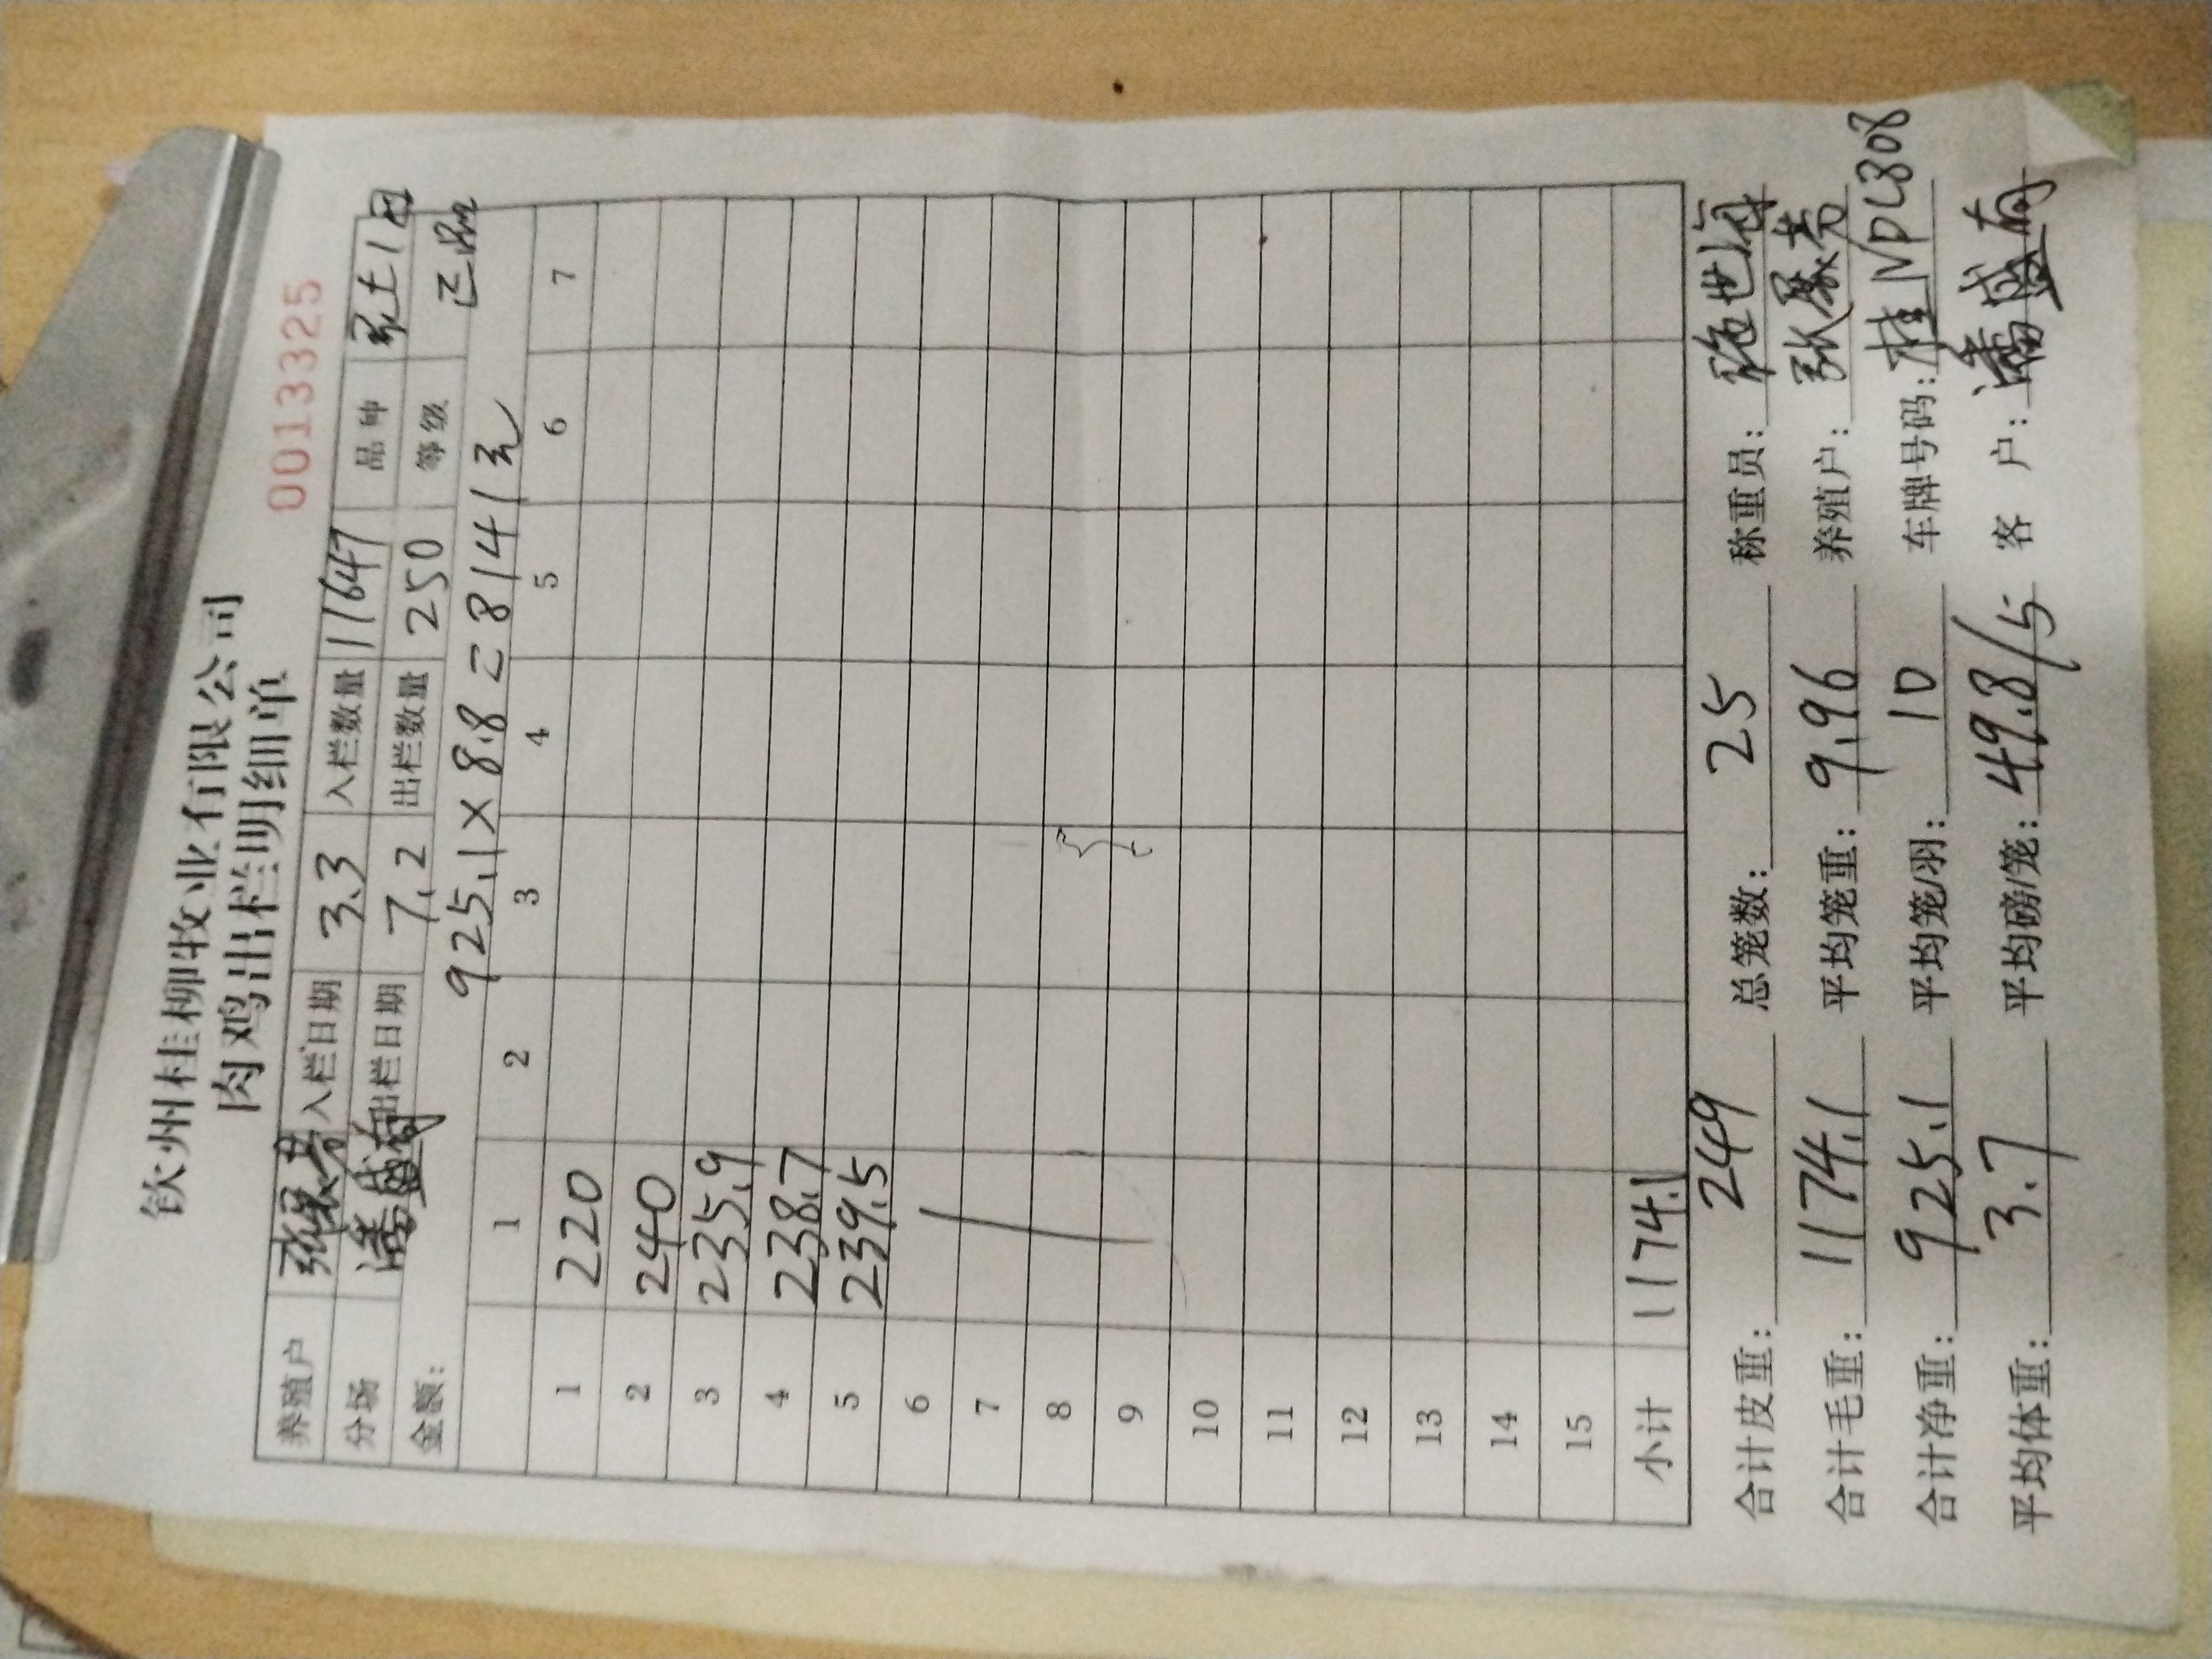 钦州桂柳牧业有限公司
肉鸡出栏明细单
0013325
养殖户 入栏日期 3.3 入栏数量 11647 品种 土1
分场 潘盛 出栏日期 7.2 出栏数量 250 等级 正品
金额: 925.1×8.8=8141元
1 2 3 4 5 6 7
1 220
2 240
3 235.9
4 238.7
5 239.5
6
7
8
9
10
11
12
13
14
15
小计 1174.1
合计皮重: 249 总笼数: 25 称重员: 施世海
合计毛重: 1174.1 平均笼重: 9.96 养殖户: 张
合计净重: 925.1 平均笼/羽: 10 车牌号码: 桂NDL308
平均体重: 3.7 平均磅/笼: 49.8/5 客 户: 潘盛